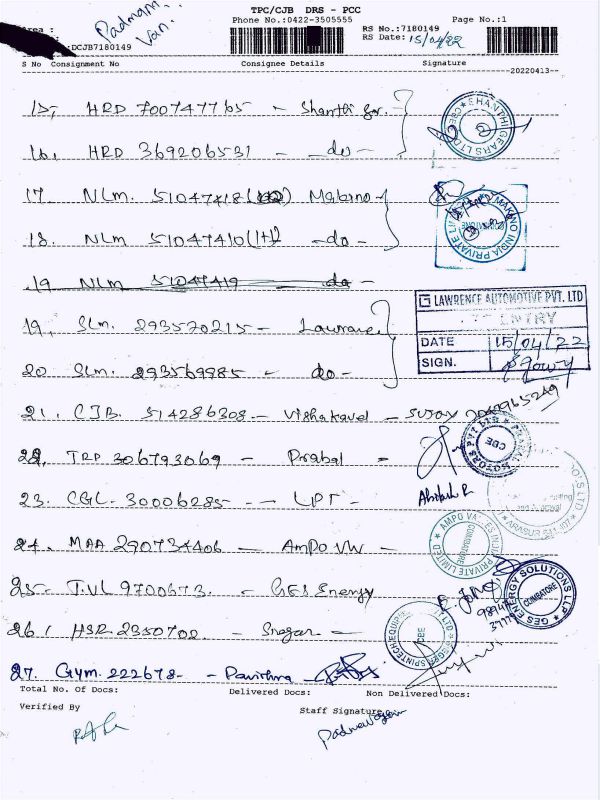 TPC/CJB DRS - PCC
Padmam.
Van.
Phone No.:0422-3505555
Page No.:1
RS No.:7180149
RS Date: 15/04/22
:DCJB7180149
S No Consignment No Consignee Details Signature
20220413--
15, HRD 700747765 - Shanthi Gr.
16. HRD 369206531 - do -
SHANTHI GEARS LTD
CBE
17. NLM. 51047418 Makino
18. NLM 51047410(1+1) - do -
MAKINO INDIA PRIVATE LIMITED
COIMBATORE
19 NLM 51047419 do -
19. SLM. 293570215 - Lawrance
20. SLM. 293569985 - do -
LAWRENCE AUTOMOTIVE PVT. LTD
ENTRY
DATE 15/04/22
SIGN.
21. CJB. 514286308 - Vishakavel - Sujay
22. TRP 306793069 - Prabal -
MOTORS PVT LTD
CBE
23. CGL. 30006285 - LPT -
Abilash R
ARASUR 641 407
24. MAA 290734406 - AMPO VW -
AMPO VALVES INDIA PRIVATE LIMITED
COIMBATORE
25 - TVL 9700673. - GES Energy
GES ENERGY SOLUTIONS LLP
COIMBATORE
26. HSR 2350702 - Snagar -
CBE
27. Gym. 222678 - Pavithra
Total No. Of Docs: Delivered Docs: Non Delivered Docs:
Verified By
Staff Signature